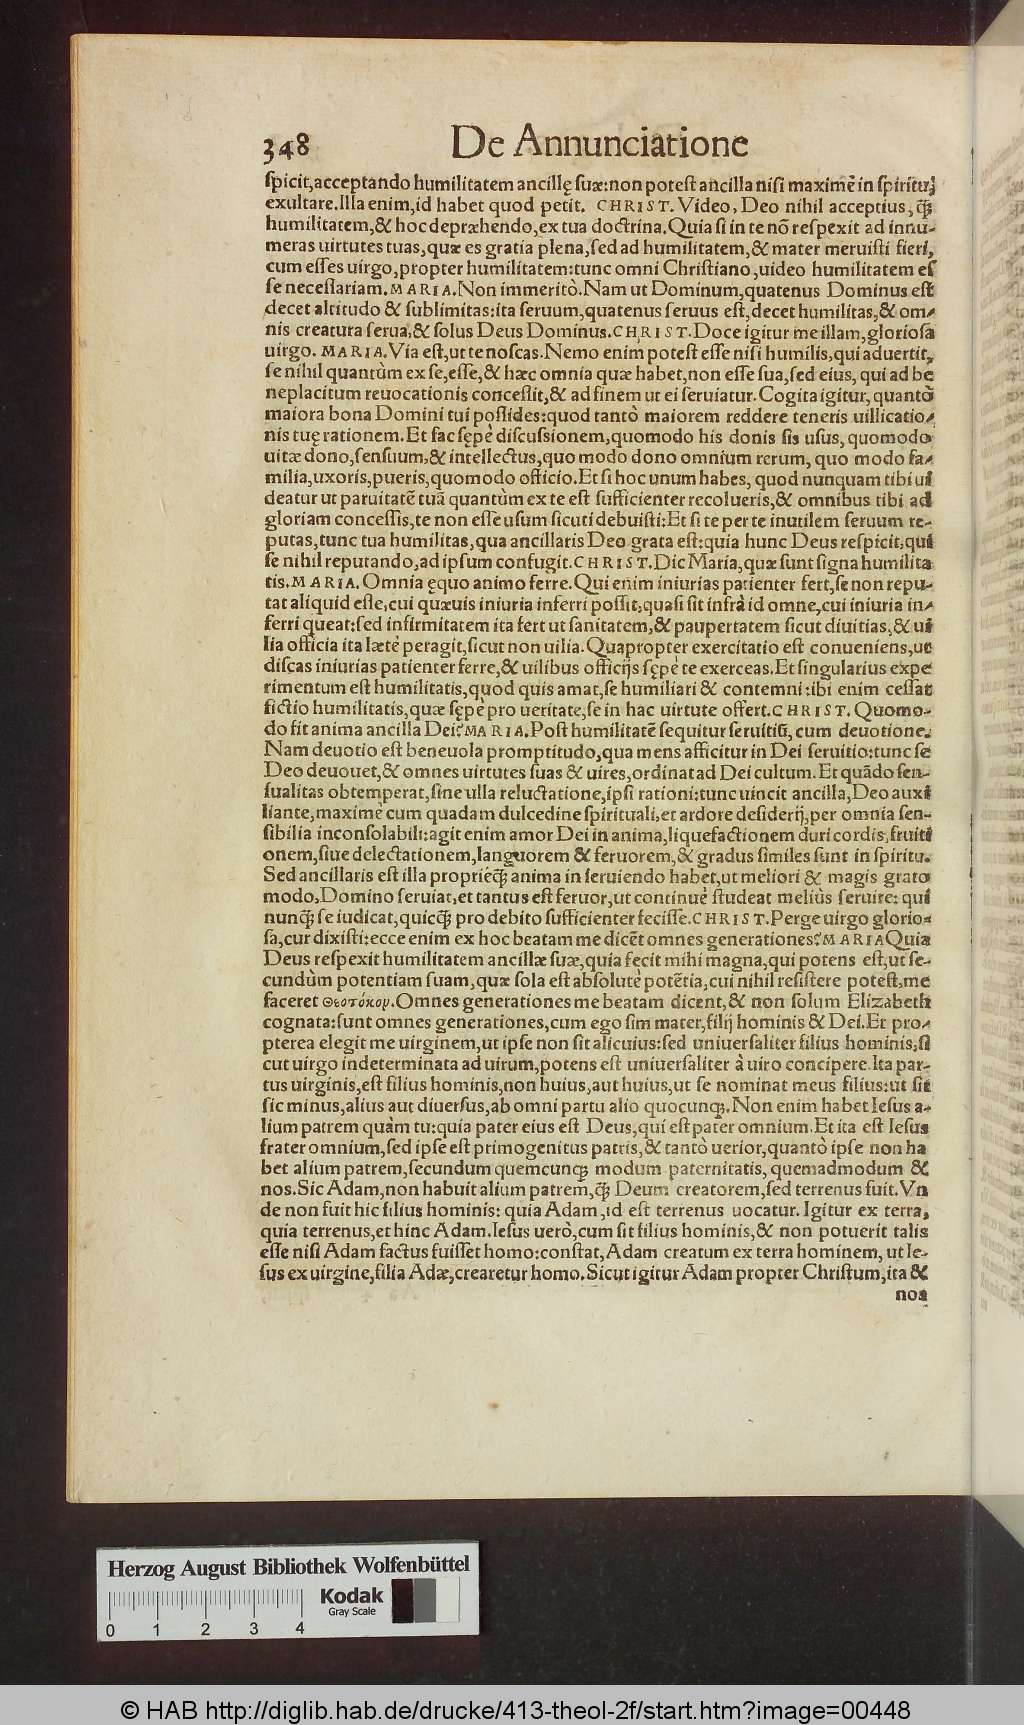 348 De Annunciatione
spicit,acceptando humilitatem ancillę suæ:non potest ancilla nisi maximè in spiritu,
exultare.Illa enim,id habet quod petit. CHRIST.Video, Deo nihil acceptius, q̃
humilitatem,& hoc depræhendo,ex tua doctrina.Quia si in te nõ respexit ad innu-
meras uirtutes tuas,quæ es gratia plena,sed ad humilitatem,& mater meruisti fieri,
cum esses uirgo,propter humilitatem:tunc omni Christiano,uideo humilitatem es
se necessariam.MARIA.Non immeritò.Nam ut Dominum,quatenus Dominus est
decet altitudo & sublimitas:ita seruum,quatenus seruus est,decet humilitas,& om-
nis creatura serua,& solus Deus Dominus.CHRIST.Doce igitur me illam,gloriosa
uirgo. MARIA.Via est,ut te noscas.Nemo enim potest esse nisi humilis,qui aduertit,
se nihil quantùm ex se,esse,& hæc omnia quæ habet,non esse sua,sed eius, qui ad be
neplacitum reuocationis concessit,& ad finem ut ei seruiatur.Cogita igitur,quantò
maiora bona Domini tui possides:quod tantò maiorem reddere teneris uillicatio-
nis tuę rationem.Et fac sępè discussionem,quomodo his donis sis usus, quomodo
uitæ dono,sensuum,& intellectus,quo modo dono omnium rerum, quo modo fa-
milia,uxoris,pueris,quomodo officio.Et si hoc unum habes, quod nunquam tibi ui
deatur ut paruitatẽ tuã quantùm ex te est sufficienter recolueris,& omnibus tibi ad
gloriam concessis,te non esse usum sicuti debuisti:Et si te per te inutilem seruum re-
putas,tunc tua humilitas,qua ancillaris Deo grata est:quia hunc Deus respicit,qui
se nihil reputando,ad ipsum confugit.CHRIST.Dic Maria,quæ sunt signa humilita
tis.MARIA.Omnia ęquo animo ferre.Qui enim iniurias patienter fert,se non repu-
tat aliquid esse,cui quæuis iniuria inferri possit,quasi sit infrà id omne,cui iniuria in-
ferri queat:sed infirmitatem ita fert ut sanitatem,& paupertatem sicut diuitias,& ui
lia officia ita lætè peragit,sicut non uilia.Quapropter exercitatio est conueniens,ut
discas iniurias patienter ferre,& uilibus officijs sępè te exerceas.Et singularius expe
rimentum est humilitatis,quod quis amat,se humiliari & contemni:ibi enim cessat
fictio humilitatis,quæ sępè pro ueritate,se in hac uirtute offert.CHRIST. Quomo-
do fit anima ancilla Dei?MARIA.Post humilitatẽ sequitur seruitiũ, cum deuotione.
Nam deuotio est beneuola promptitudo,qua mens afficitur in Dei seruitio:tunc se
Deo deuouet,& omnes uirtutes suas & uires,ordinat ad Dei cultum.Et quãdo sen-
sualitas obtemperat,sine ulla reluctatione,ipsi rationi:tunc uincit ancilla,Deo auxi
liante,maximè cum quadam dulcedine spirituali,et ardore desiderij,per omnia sen-
sibilia inconsolabili:agit enim amor Dei in anima,liquefactionem duri cordis,fruiti
onem,siue delectationem,languorem & feruorem,& gradus similes sunt in spiritu.
Sed ancillaris est illa propriè,q̃ anima in seruiendo habet,ut meliori & magis grato
modo,Domino seruiat,et tantus est feruor,ut continuè studeat meliùs seruire: qui
nunq̃ se iudicat,quicq̃ pro debito sufficienter fecisse.CHRIST.Perge uirgo glorio-
sa,cur dixisti:ecce enim ex hoc beatam me dicẽt omnes generationes?MARIA Quia
Deus respexit humilitatem ancillæ suæ,quia fecit mihi magna,qui potens est,ut se-
cundùm potentiam suam,quæ sola est absolutè potẽtia,cui nihil resistere potest,me
faceret Θεοτόκου.Omnes generationes me beatam dicent,& non solum Elizabeth
cognata:sunt omnes generationes,cum ego sim mater,filij hominis & Dei.Et pro-
pterea elegit me uirginem,ut ipse non sit alicuius:sed uniuersaliter filius hominis,si
cut uirgo indeterminata ad uirum,potens est uniuersaliter à uiro concipere.Ita par-
tus uirginis,est filius hominis,non huius,aut huius,ut se nominat meus filius:ut sit
sic minus,alius aut diuersus,ab omni partu alio quocunq;.Non enim habet Iesus a-
lium patrem quàm tu:quia pater eius est Deus,qui est pater omnium.Et ita est Iesus
frater omnium,sed ipse est primogenitus patris,& tantò uerior,quantò ipse non ha
bet alium patrem,secundum quemcunq; modum paternitatis, quemadmodum &
nos.Sic Adam,non habuit alium patrem,q̃ Deum creatorem,sed terrenus fuit.Vn
de non fuit hic filius hominis: quia Adam,id est terrenus uocatur. Igitur ex terra,
quia terrenus,et hinc Adam.Iesus uerò,cum sit filius hominis,& non potuerit talis
esse nisi Adam factus fuisset homo:constat,Adam creatum ex terra hominem, ut Ie-
sus ex uirgine,filia Adæ,crearetur homo.Sicut igitur Adam propter Christum,ita &
nos
Herzog August Bibliothek Wolfenbüttel
Kodak
Gray Scale
0 1 2 3 4
© HAB http://diglib.hab.de/drucke/413-theol-2f/start.htm?image=00448